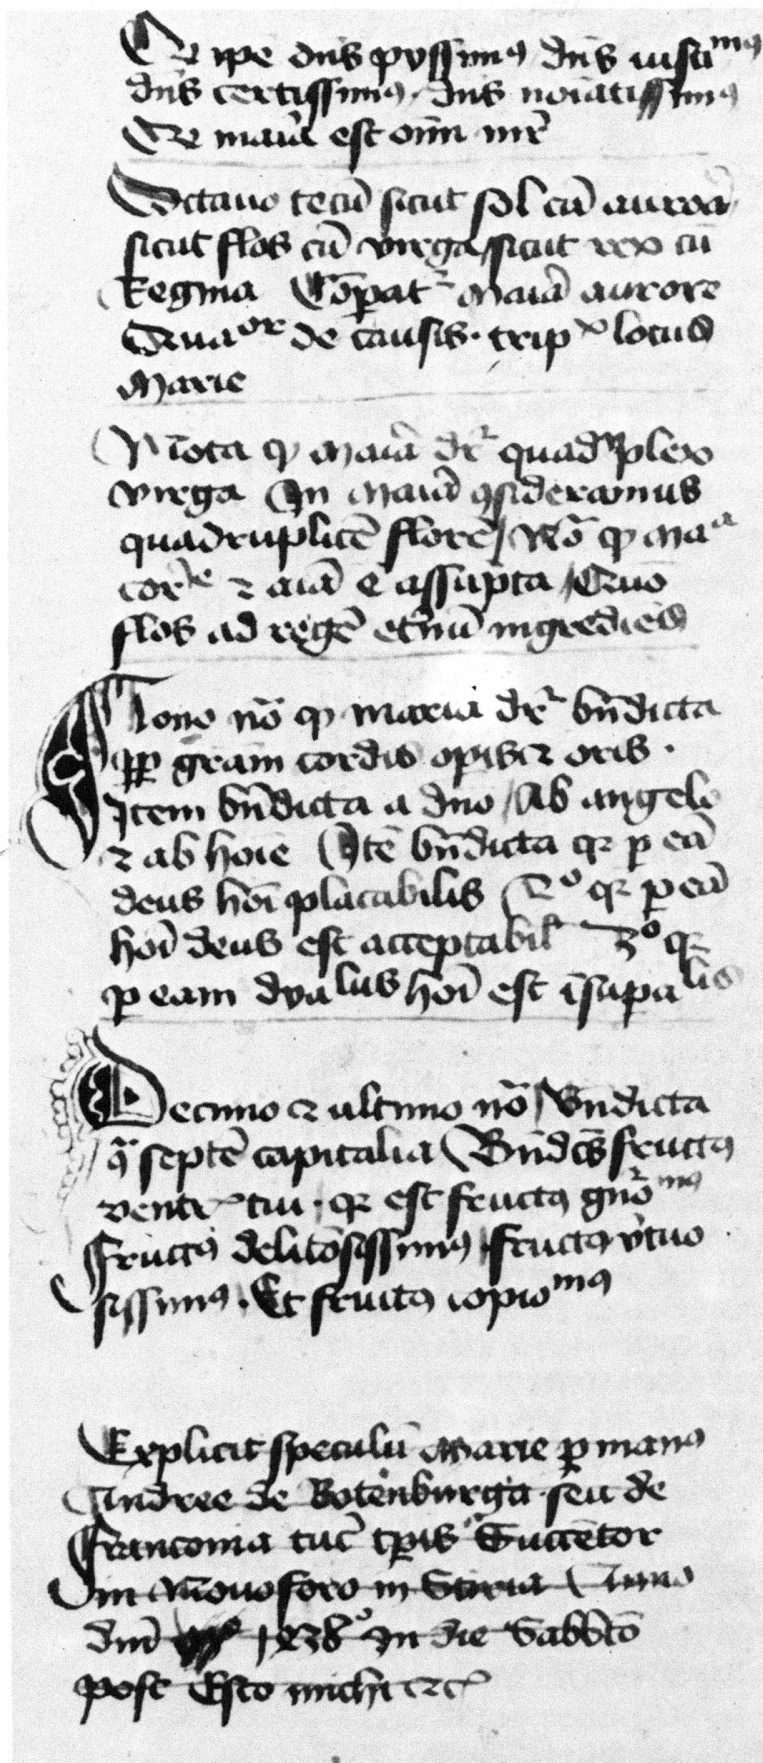 Et ip̄e dn̄s pyssimꝯ dn̄s iustimꝯ
dn̄s certissimꝯ · dn̄s noīatissimꝯ
est oīm mr̄
Octavo tecū sicut sol cū aurora
sicut flos cū virga / sicut rex cū
Regina Cōpat᷑ Maīa aurore
de causis · trip͛ locus
Marie
Nota ꝙ Maīa dr̄ quadruplex
virga In Maīa ꝯsideramus
quadruplicē florē / Nō ꝙ Maᵃ
⁊ aīa ē assūpta /
flos ad regē et̄nū ingrediēs
Nono nō ꝙ maria dr̄ bn̄dicta
ꝓpt̄ grām cordis opis ⁊ oris ·
Item bn̄dicta a dn̄o / Ab angelo
⁊ ab hoīe Itē bn̄dicta qꝛ ꝑ eā
deus hoī placabilis 2º qꝛ ꝑ eā
hoī deus est acceptabil̄ 3º qꝛ
ꝑ eam dyalus hoī est īsupalis
Decimo ⁊ ultimo nō / bn̄dicta
septē capitalia Bn̄dc̄s fructꝯ
ventr̄ tui · qꝛ est fructꝯ gn̄oᵐꝯ
Fructꝯ delitosissimꝯ / fructꝯ v̄tuo
sissimꝯ · Et fructꝯ copioᵐꝯ
Explicit speculū Marie ꝑ manꝯ
Andree de Rotenburga seu de
Franconia tūc tꝑis Succētor
in Novoforo in Stiria Anno
dn̄i 1438º In die Sabb̄to
post Esto michi ⁊c̄